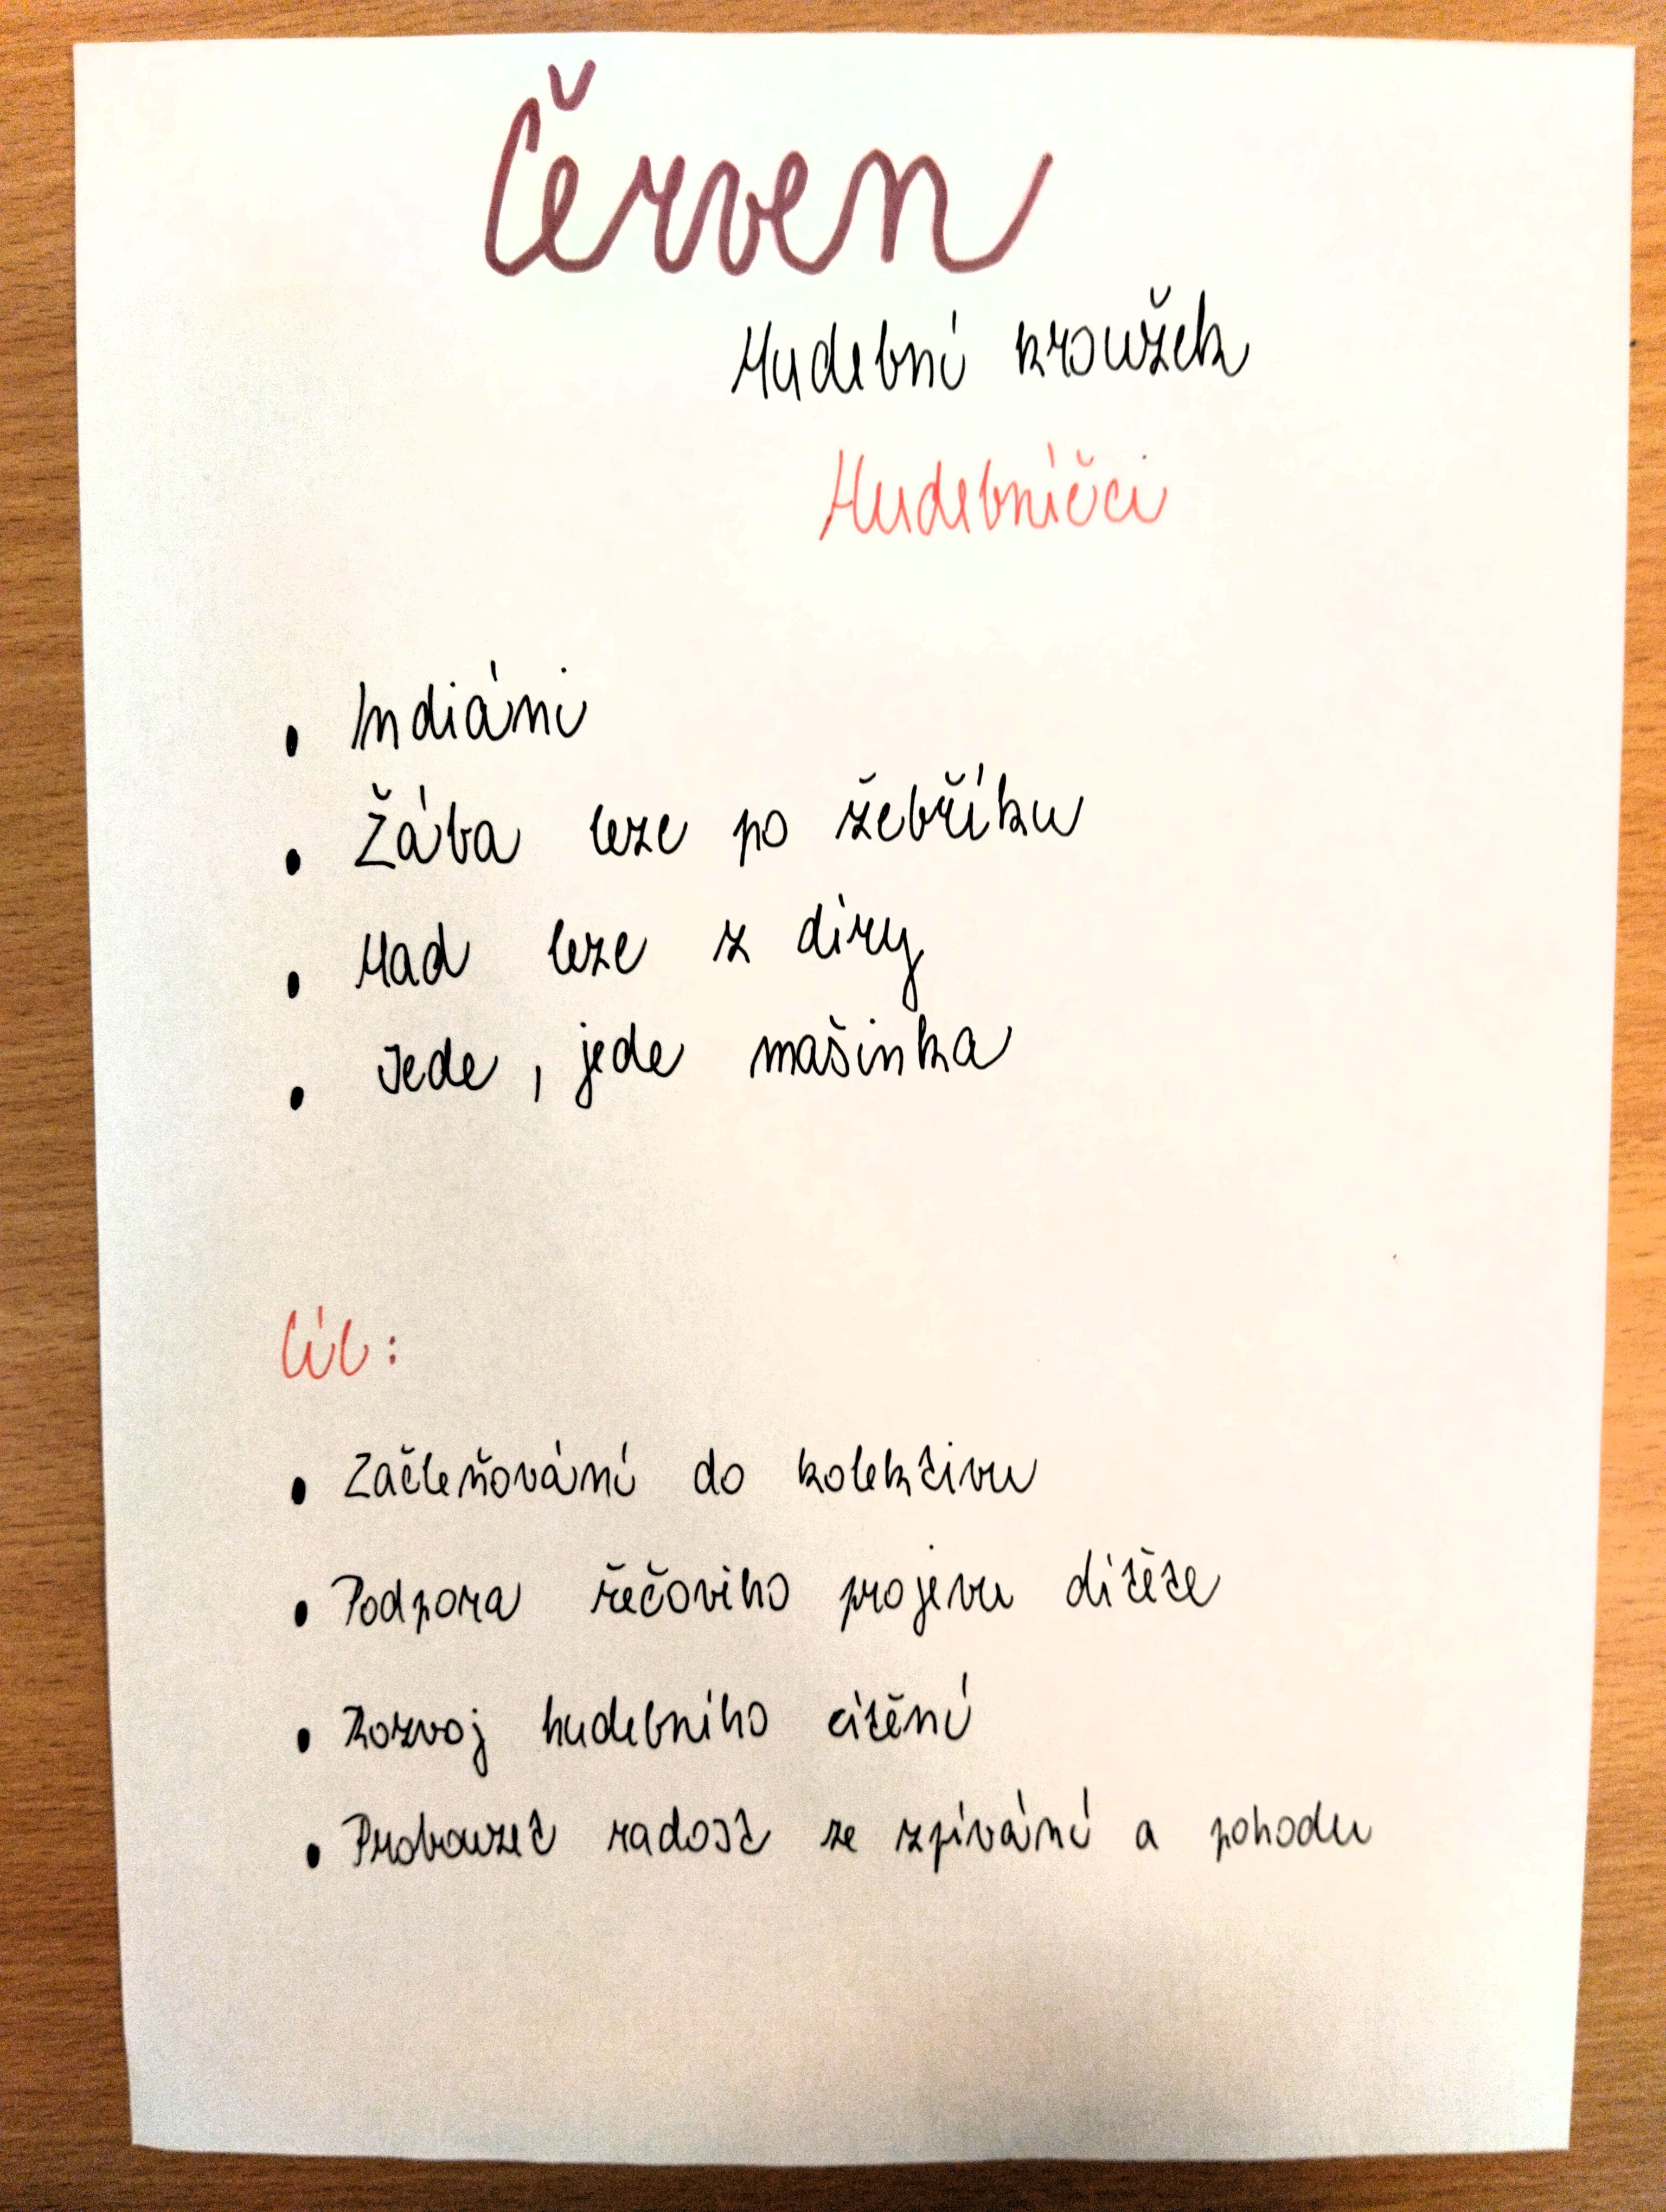 Červen
Hudební kroužek
Hudebníčci
• Indiáni
• Žába leze po žebříku
• Had leze z díry
• Jede, jede mašinka
Cíl:
• Začleňování do kolektivu
• Podpora řečového projevu dítěte
• Rozvoj hudebního cítění
• Probouzet radost ze zpívání a pohodu